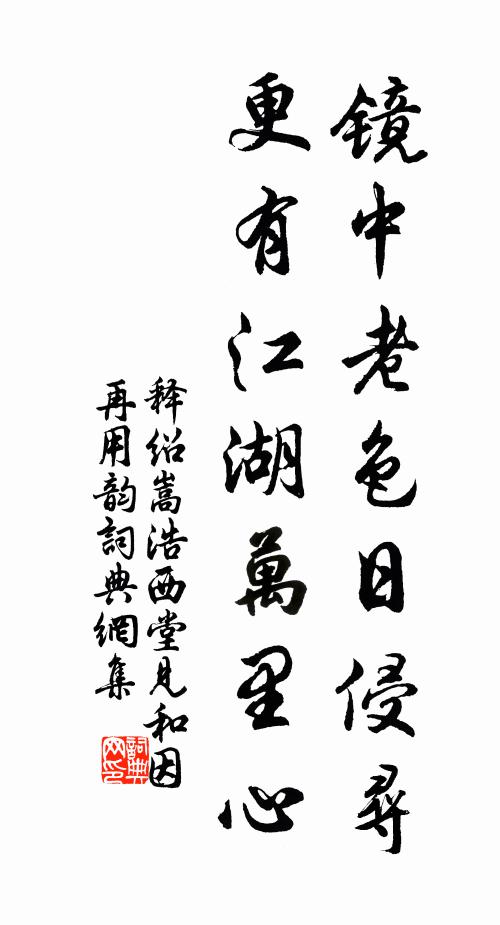 镜中老色日侵尋
更有江湖萬里心
释绍嵩浩西堂見和因
再用韵詞典網集
詞典
网印